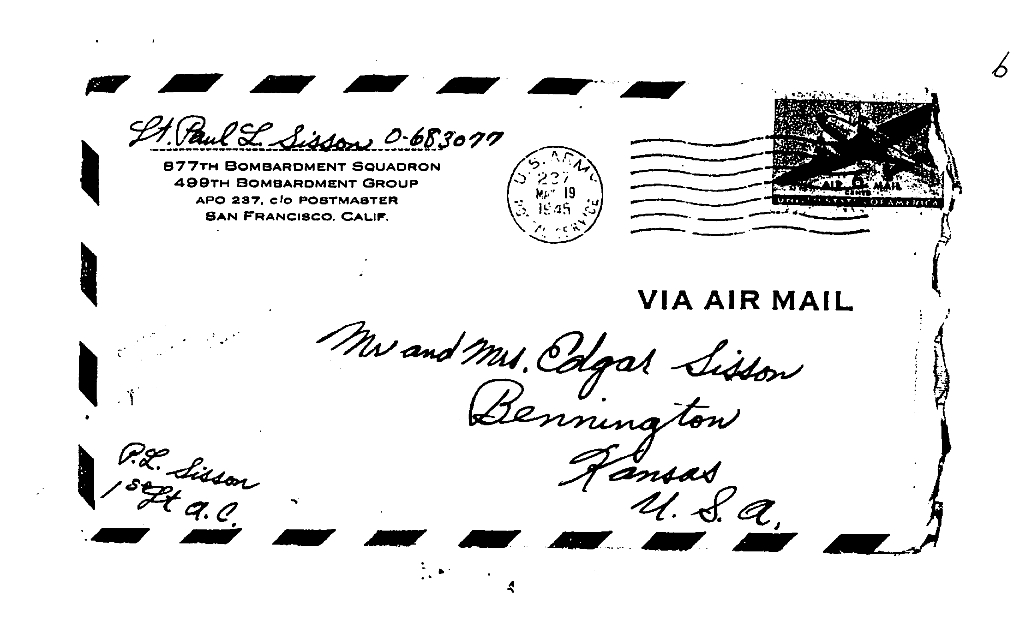 6
Lt. Paul L. Sisson O-683077
877TH BOMBARDMENT SQUADRON
499TH BOMBARDMENT GROUP
APO 237, c/o POSTMASTER
SAN FRANCISCO, CALIF.
U.S. ARMY
237
19
1945
POSTAL SERVICE
AIR 6 MAIL
CENTS
UNITED STATES OF AMERICA
VIA AIR MAIL
Mr and Mrs. Edgar Sisson
Bennington
Kansas
U. S. A.
P.L. Sisson
1st Lt A.C.